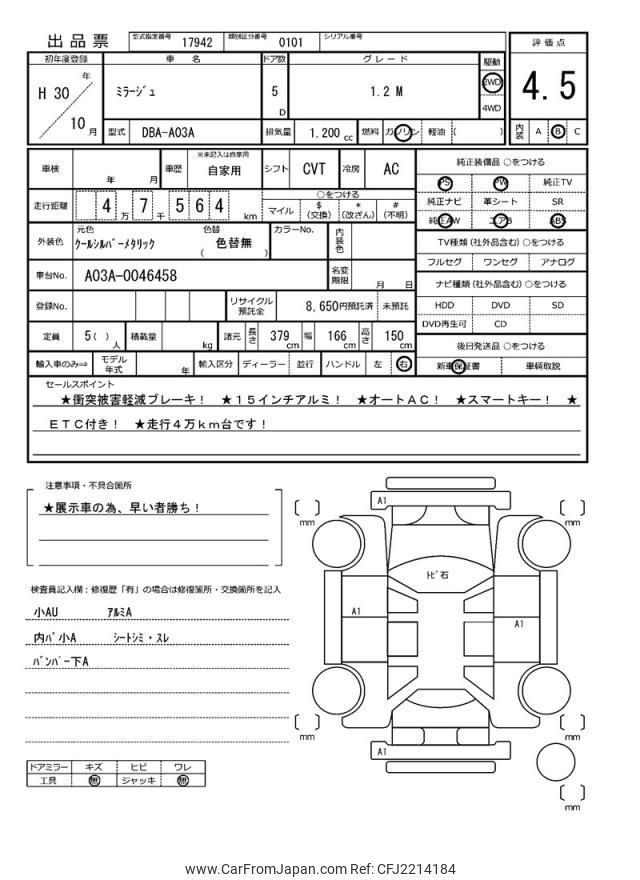 出品票 型式指定番号 17942 類別区分番号 0101 シリアル番号
評価点
4.5
内装 A B C
初年度登録 車名 ドア数 グレード 駆動
H 30 年 10 月
ﾐﾗｰｼﾞｭ 5 D 1.2 M 2WD
4WD
型式 DBA-A03A 排気量 1.200 cc 燃料 ガソリン 軽油 ( )
車検 年 月 車歴 ※未記入は自家用 自家用 シフト CVT 冷房 AC
走行距離 4 万 7 千 5 6 4 km
○をつける
マイル $ (交換) * (改ざん) # (不明)
外装色 元色 ｸｰﾙｼﾙﾊﾞｰﾒﾀﾘｯｸ 色替 ( 色替無 ) カラーNo. 内装色
車台No. A03A-0046458 名変期限 月 日
登録No. リサイクル預託金 8,650円預託済 未預託
定員 5( ) 人 積載量 kg 諸元 長さ 379 cm 幅 166 cm 高さ 150 cm
輸入車のみ⇒ モデル年式 年 輸入区分 ディーラー 並行 ハンドル 左 右
純正装備品 ○をつける
PS PW 純正TV
純正ナビ 革シート SR
純正AW エアB ABS
TV種類(社外品含む)○をつける
フルセグ ワンセグ アナログ
ナビ種類(社外品含む)○をつける
HDD DVD SD
DVD再生可 CD
後日発送品 ○をつける
新車保証書 車輌取説
セールスポイント
★衝突被害軽減ブレーキ！ ★１５インチアルミ！ ★オートＡＣ！ ★スマートキー！ ★
ＥＴＣ付き！ ★走行４万ｋｍ台です！
注意事項・不具合箇所
★展示車の為、早い者勝ち！
検査員記入欄：修復歴「有」の場合は修復箇所・交換箇所を記入
小AU ｱﾙﾐA
内ﾊﾞ小A ｼｰﾄｼﾐ・ｽﾚ
ﾊﾞﾝﾊﾟｰ下A
ドアミラー キズ ヒビ ワレ
工具 無 ジャッキ 無
A1
mm
mm
ﾄﾋﾞ石
A1
A1
mm
mm
A1
mm
www.CarFromJapan.com Ref: CFJ2214184